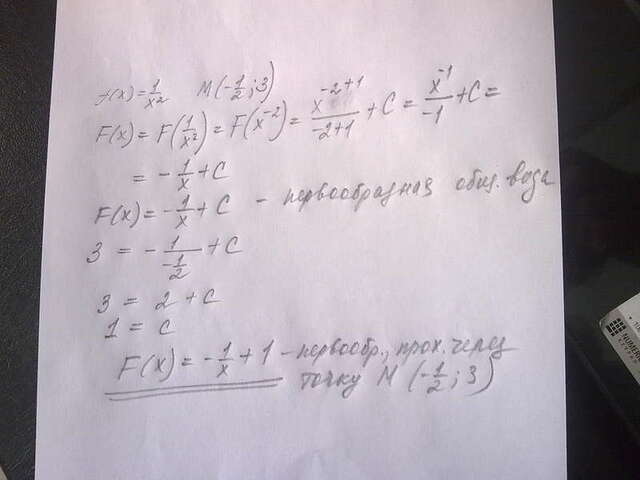 f(x) = 1/x² M(-1/2; 3)
F(x) = F(1/x²) = F(x⁻²) = x⁻²⁺¹/-2+1 + C = x⁻¹/-1 + C =
= - 1/x + C
F(x) = - 1/x + C - первообразная общ. вида
3 = - 1/-1/2 + C
3 = 2 + C
1 = C
F(x) = - 1/x + 1 - первообр., прох. через
точку M (-1/2; 3)